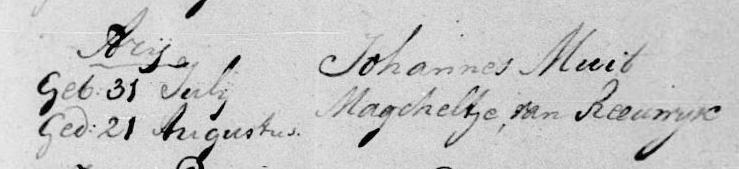 Arij
Geb: 31 Julij
Ged: 21 Augustus.
Johannes Muit
Magcheltje van Reeuwyk